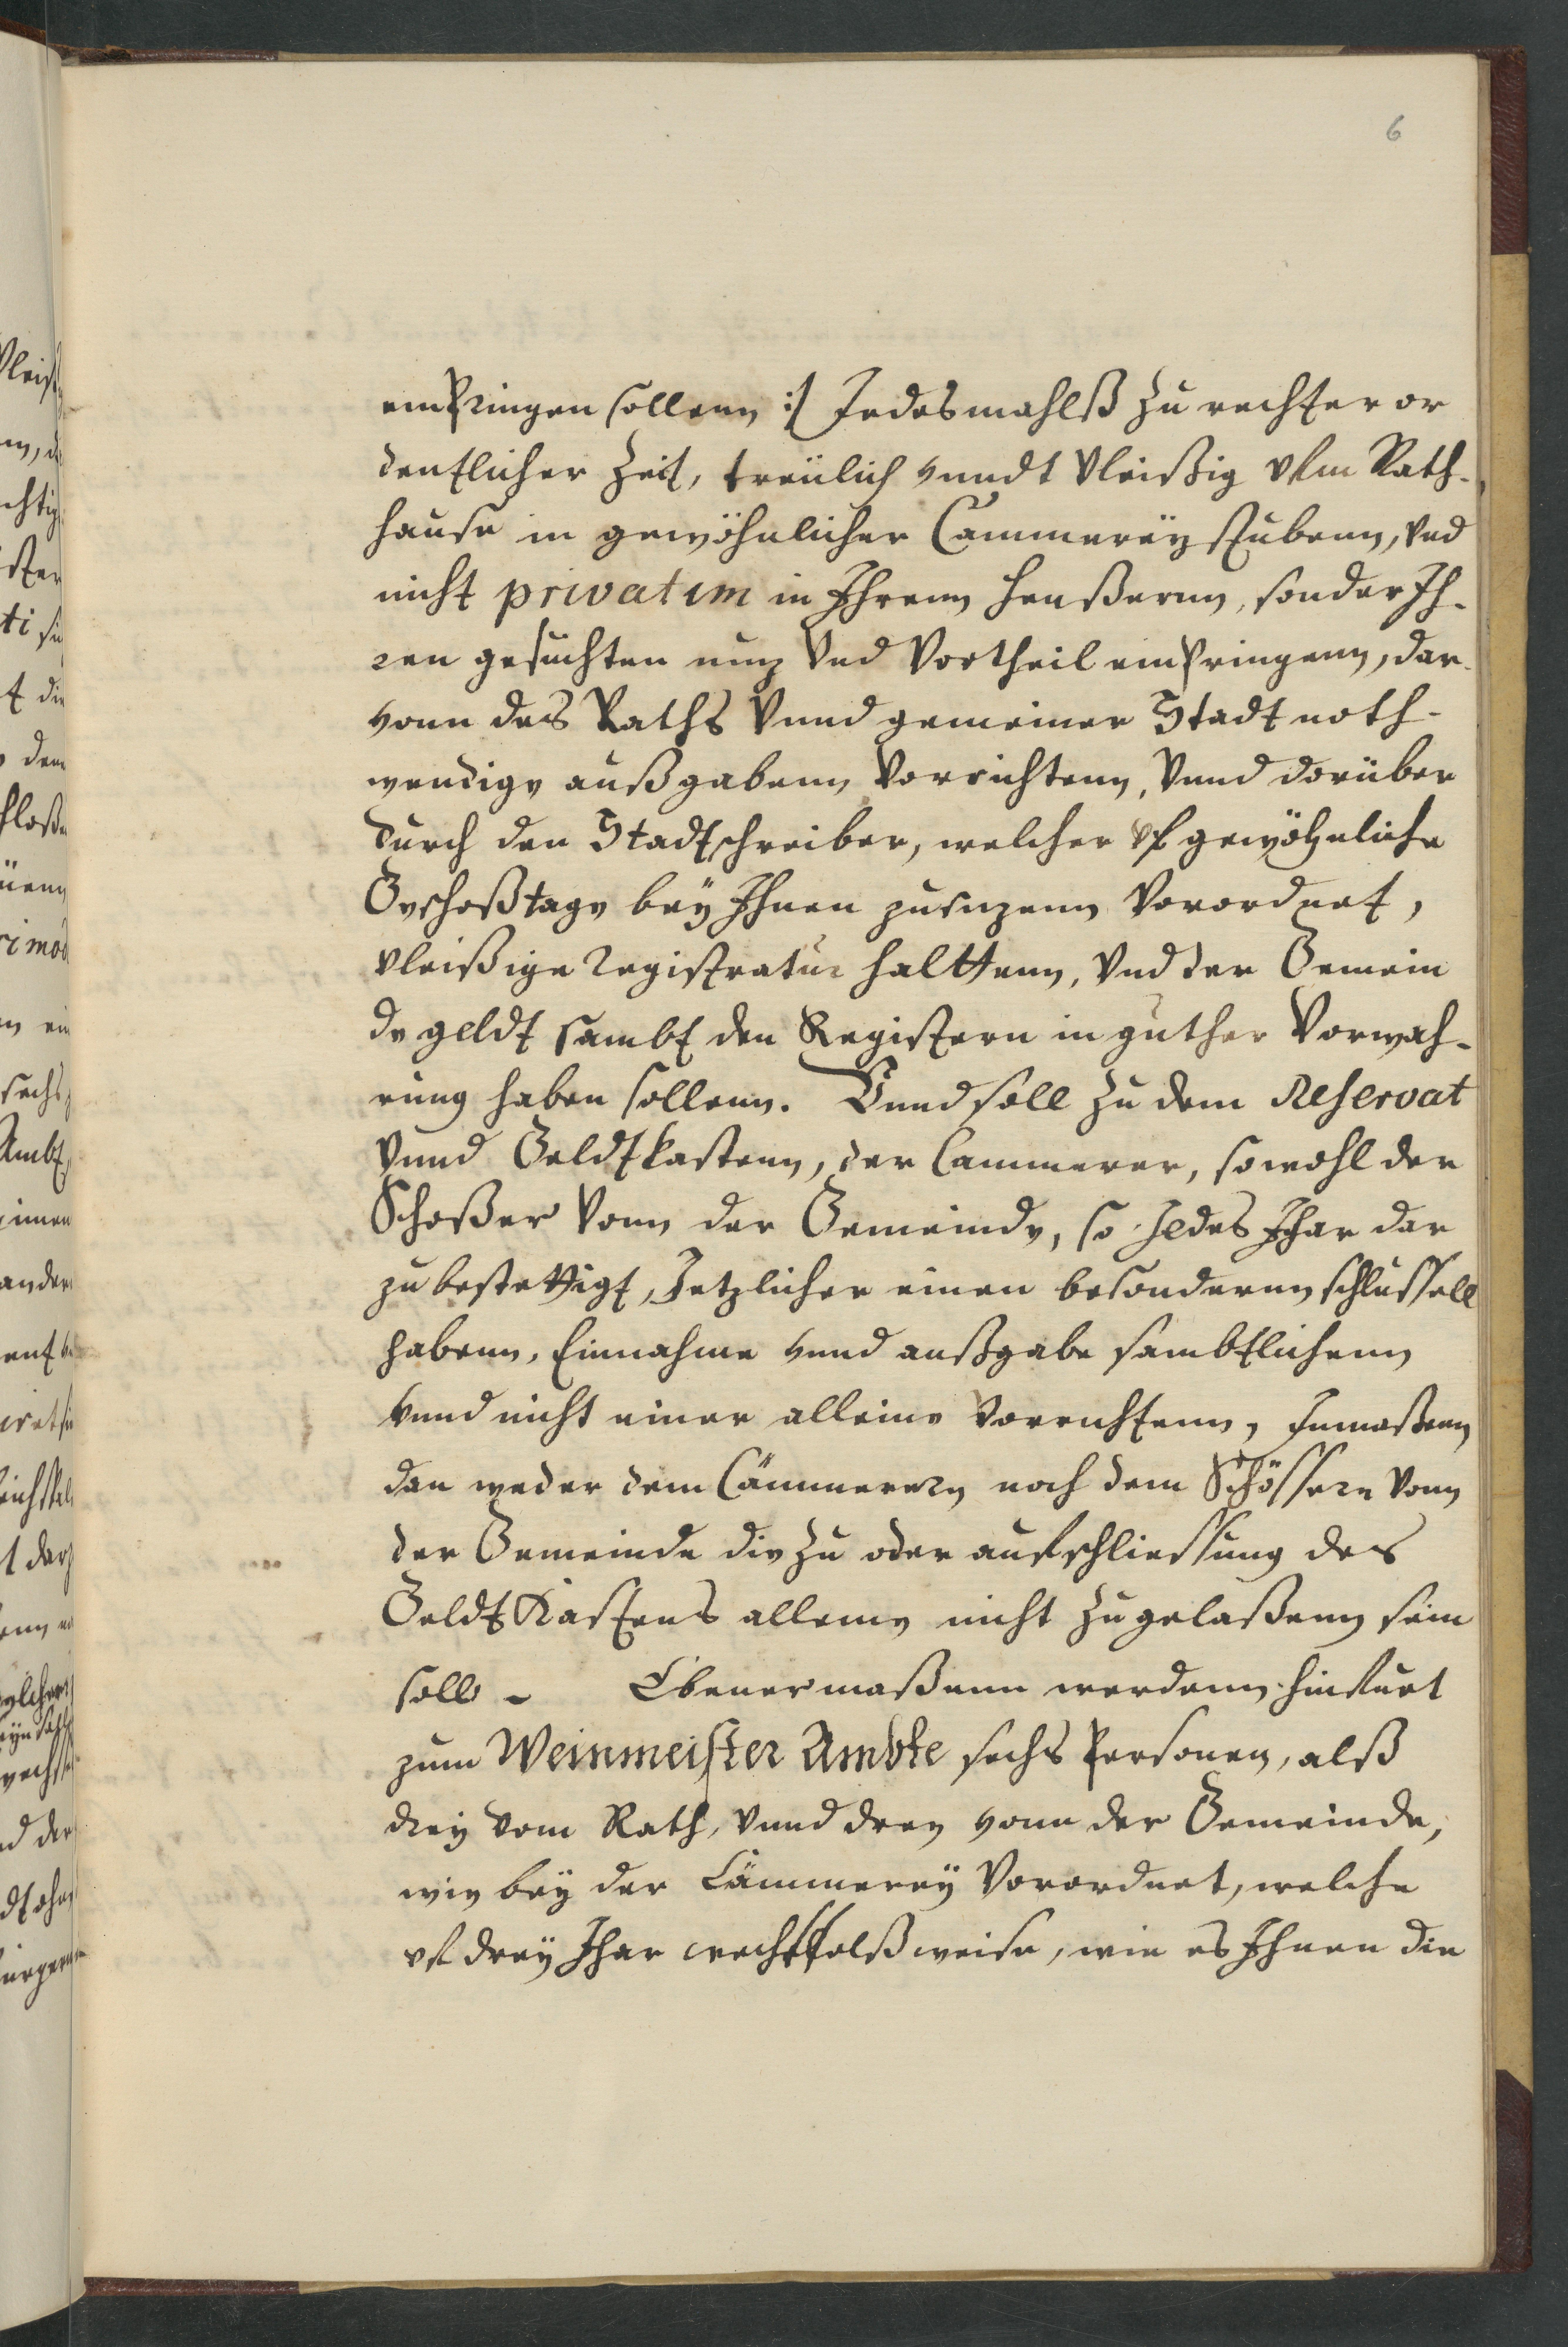 6
einbringen sollenn :/ Jedesmahlß zu rechter or
dentlicher Zeit, treülich vnndt vleißig vfm Rath-
hause in gewöhnlicher Cammereÿ stubenn, vnd
nicht privatim in Ihrenn heußernn, sonder Ih-
ren gesuchten nuz vnd Vortheil einbringenn, dar-
vonn des Raths vnnd gemeiner Stadt noth-
wendige außgabenn vorrichtenn, vnnd dorüber
durch den Stadtschreiber, welcher vf gewöhnliche
Geschoßtage beÿ Ihnen zusizenn vorordnet,
vleißige Registratur halttenn, vnd der Gemein
de geldt sambt den Registern in guther Vorwah-
rung haben sollenn. Vnnd soll zu dem Reservat
vnnd Geldtkastenn, der Cammerer, sowohl der
Schoßer vonn der Gemeinde, so Jedes Jhar dar
zu bestettigt, Jetzlicher einen besondernn schlussell
habenn, Einnahme vnnd außgabe sambtlichenn
vnnd nicht einer alleine vorrichtenn, Inmaßenn
dan weder dem Cämmerern noch dem Schössern vonn
der Gemeinde die zu oder aufschliessung des
Geldt Kastens alleine nicht zugelaßenn sein
soll - Ebenermaßenn werdenn hinfurt
zum Weinmeister Ambte sechs Personen, alß
dreÿ vom Rath, vnnd dreÿ vonn der Gemeinde,
wie beÿ der Cämmereÿ vorordnet, welche
vf dreÿ Jhar wechsselßweise, wie es Ihnen die